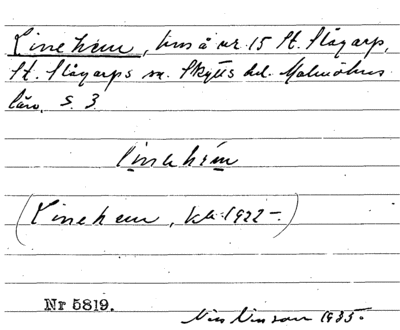 Linehem, hus å nr. 15 St. Slågarp,
St. Slågarps sn. Skytts hd. Malmöhus
län. S. 3
linehem
(Linehem, kk 1922 –)
Nr 5819.
1935.